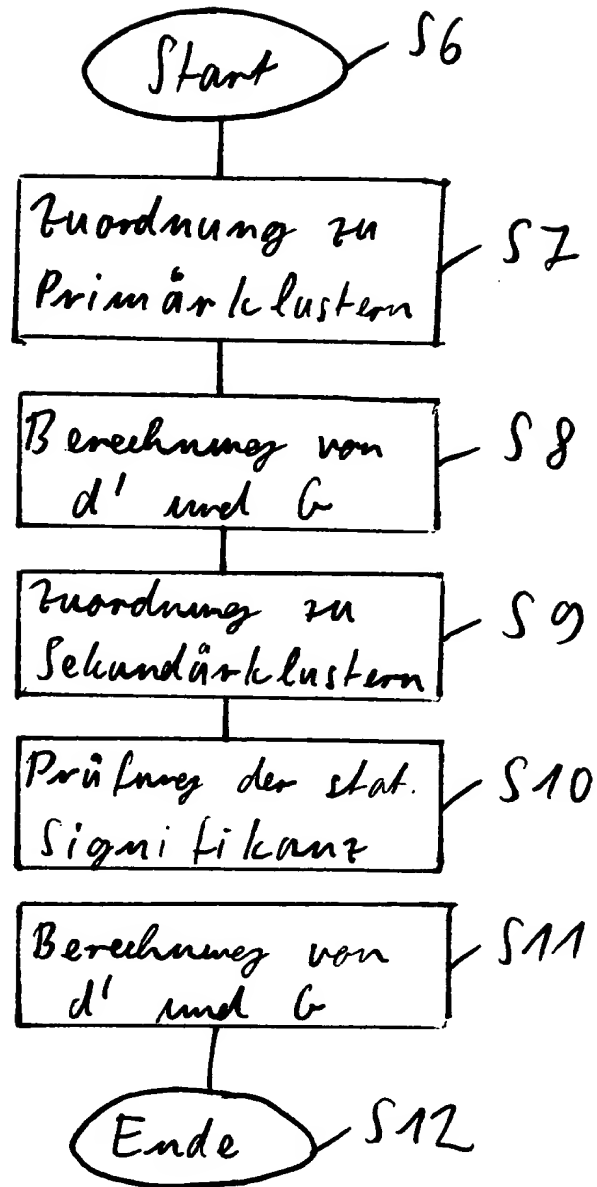 Start S6
Zuordnung zu
Primärklustern S7
Berechnung von
d' und G S8
Zuordnung zu
Sekundärklustern S9
Prüfung der stat.
Signifikanz S10
Berechnung von
d' und G S11
Ende S12